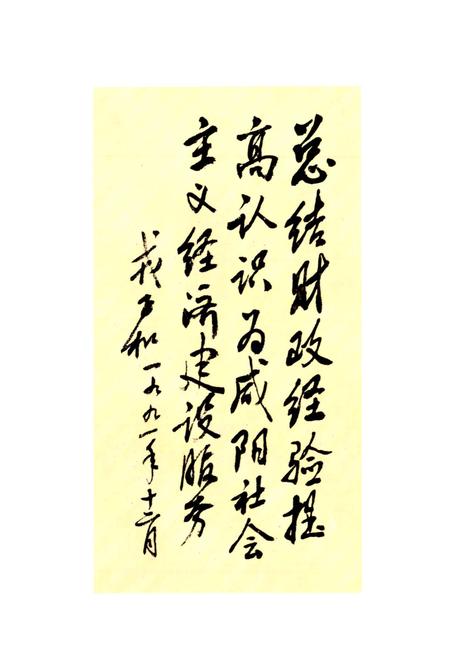 总结财政经验提
高认识为咸阳社会
主义经济建设服务
和一九九一年十二月